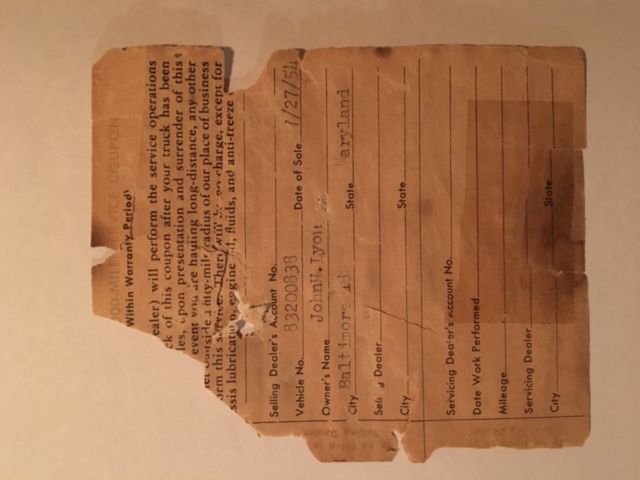 00-MILE SERVICE COUPON
Within Warranty Period)
ealer) will perform the service operations
ck of this coupon after your truck has been
les, upon presentation and surrender of this
event you are hauling long-distance, any other
outside a fifty-mile radius of our place of business
orm this service. There will be no charge, except for
ssis lubrication, engine oil, fluids, and anti-freeze
Selling Dealer's Account No.
Vehicle No. 83200838 Date of Sale 1/27/54
Owner's Name JohnH.Lyon
City Baltimore State aryland
Dealer
City State
Servicing Dealer's Account No.
Date Work Performed
Mileage
Servicing Dealer
City State
Selling Dealer